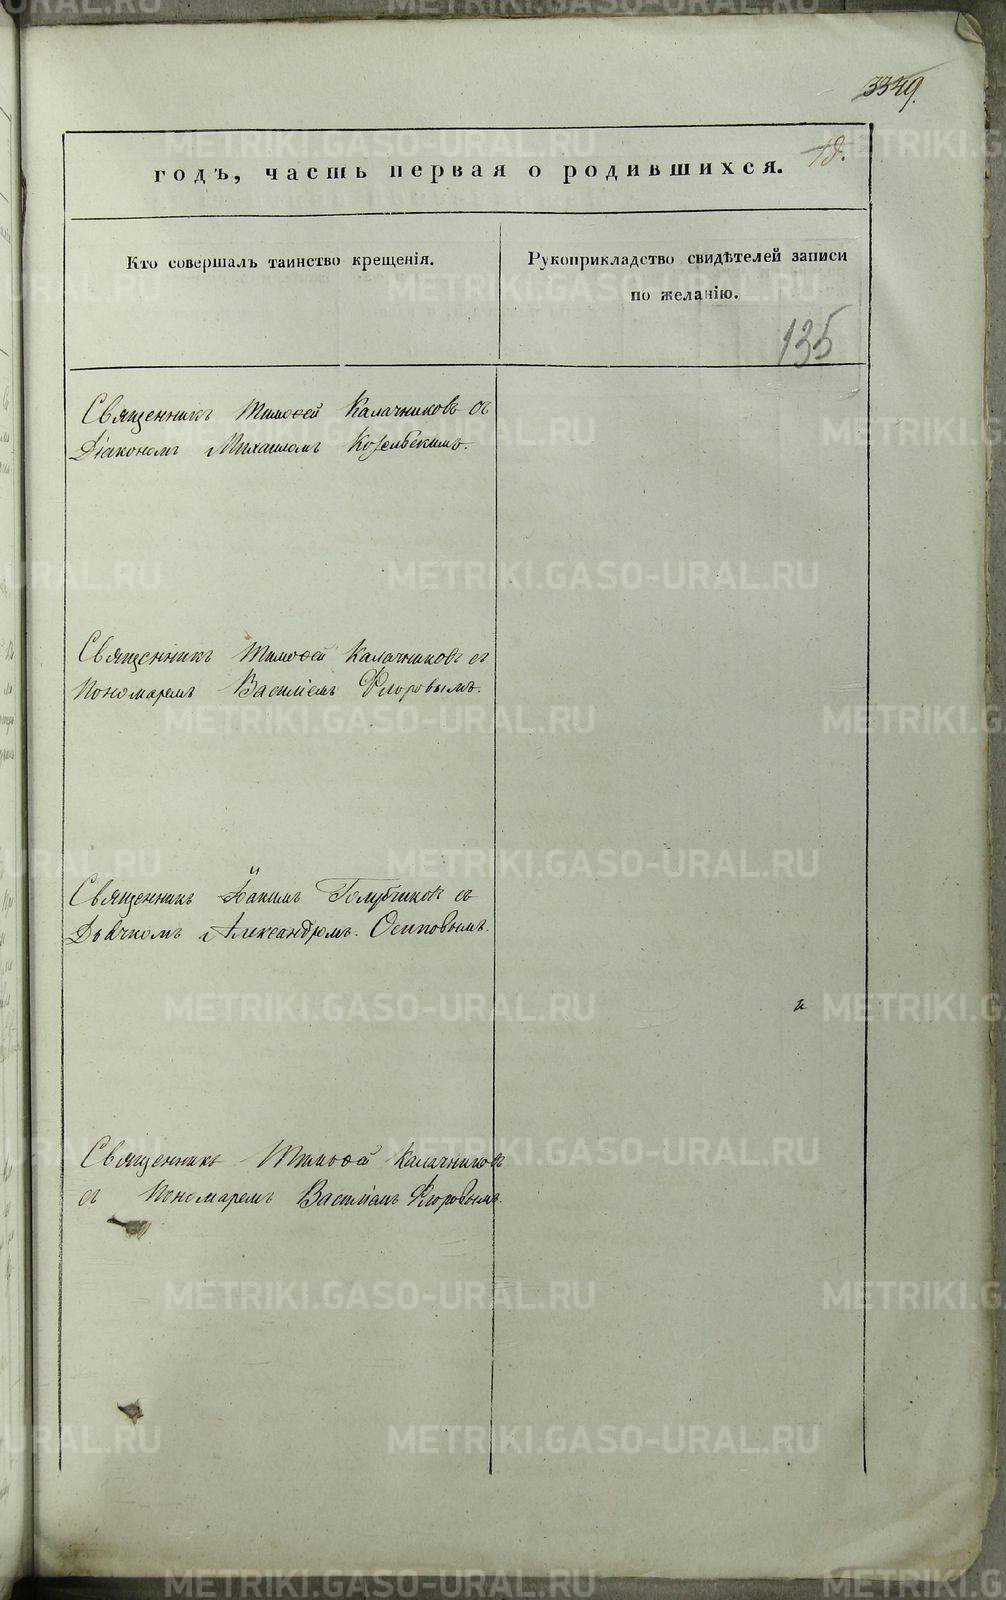 3349.
годъ, часть первая о родившихся.
Кто совершалъ таинство крещенія.
Рукоприкладство свидѣтелей записи
по желанію.
135
Священникъ Тимоѳей Калачниковъ съ
Діакономъ Михаиломъ Козельскимъ.
Священникъ Тимоѳей Калачниковъ съ
Пономаремъ Василіемъ Флоровымъ.
Священникъ Іакимъ Голубчиковъ съ
Дьячкомъ Александромъ Осиповымъ.
Священникъ Тимоѳей Калачниковъ
съ Пономаремъ Василіемъ Флоровымъ.
METRIKI.GASO-URAL.RU